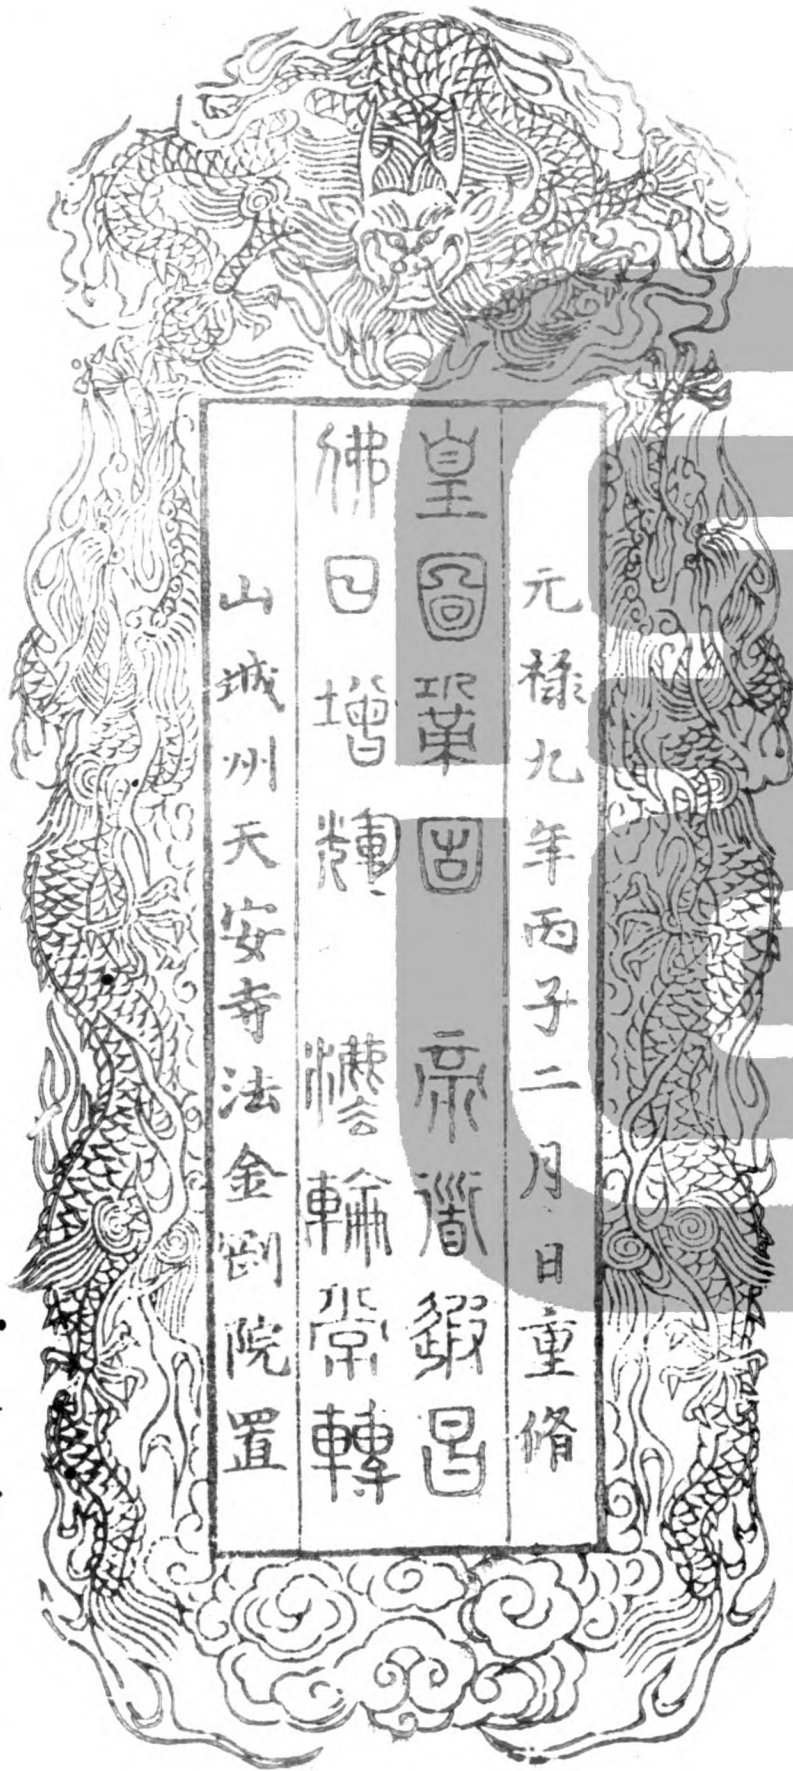 元祿九年丙子二月日重脩
皇圖鞏固 帝道遐昌
佛日增輝 灋輪常轉
山城州天安寺法金剛院置